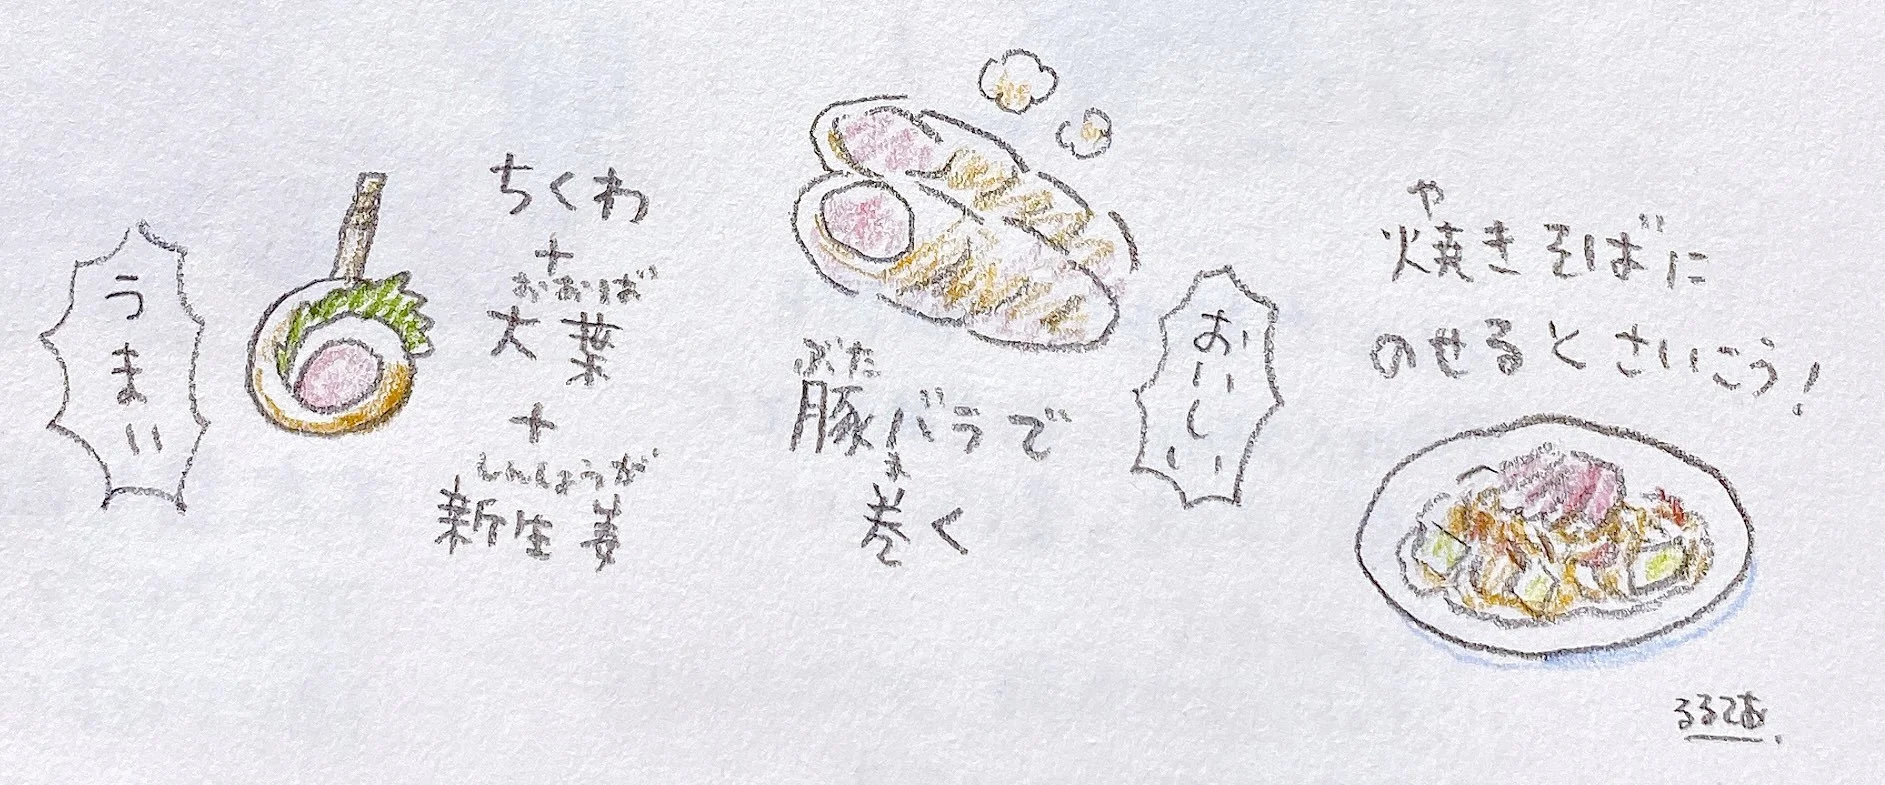 うまい
ちくわ
+
おおば
大葉
+
しんしょうが
新生姜
ぶた
豚バラで
ま
巻く
おいしい
や
焼きそばに
のせるとさいこう!